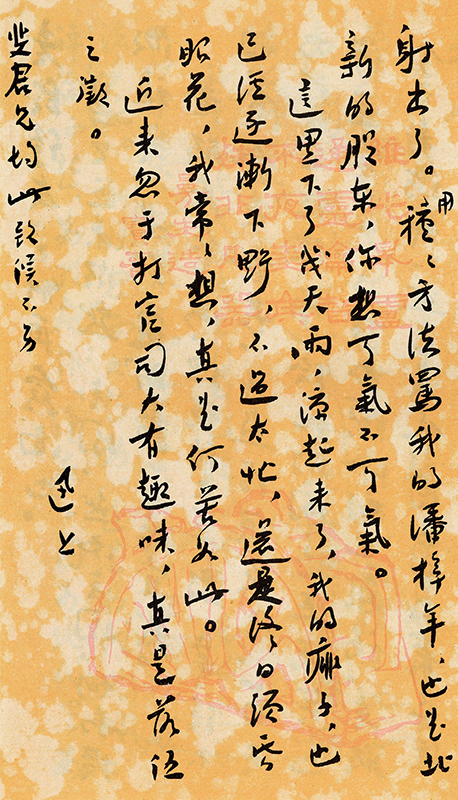 射出了。用種〻方法罵我的潘梓年，也是北
新的股东，你想可氣不可氣。
這里下了幾天雨，凉起来了，我的痱子，也
已經逐漸下野，不過太忙，還是終日頭昏
眼花，我常〻想，真是何苦如此。
近来忽于打官司大有趣味，真是落伍
之徵。
迅上
斐君兄均此致候不另